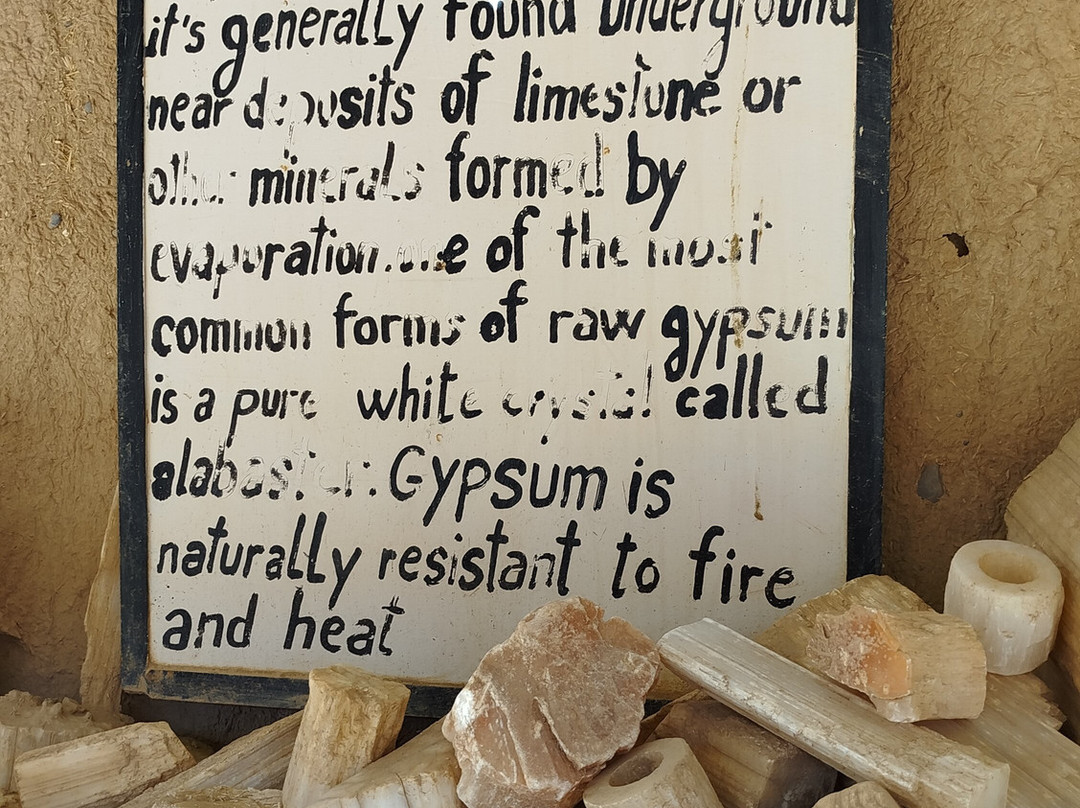 it's generally found underground
near deposits of limestone or
other minerals formed by
evaporation.one of the most
common forms of raw gypsum
is a pure white crystal called
alabaster. Gypsum is
naturally resistant to fire
and heat